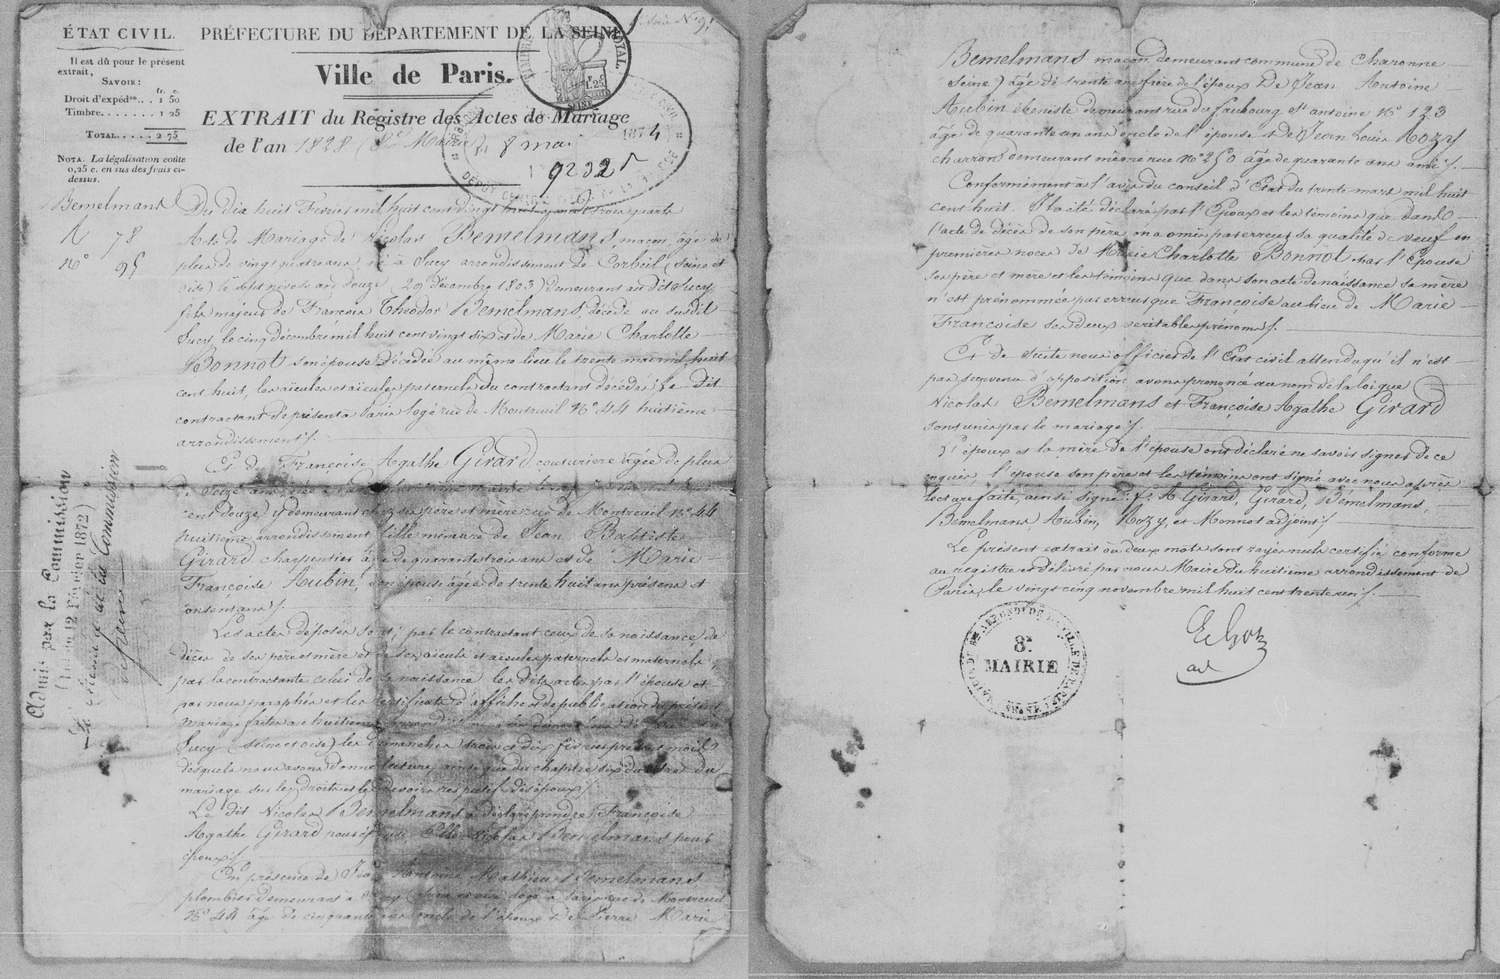 ÉTAT CIVIL.
Il est dû pour le présent
extrait,
SAVOIR:
fr. c.
Droit d'expéd.on.. 1 50
Timbre....... 1 25
TOTAL.... 2 75
NOTA. La légalisation coûte
0,25 c. en sus des frais ci-
dessus.
PRÉFECTURE DU DÉPARTEMENT DE LA SEINE
Ville de Paris.
EXTRAIT du Régistre des Actes de Mariage
de l'an 1828 (8e Mairie)
TIMBRE ROYAL
1.25
SEINE
1874
8 mai
92325
Bemelmans
N 78
N° 95
Du dix huit Février mil huit cent vingt huit trois quarts
Acte de Mariage de Nicolas Bemelmans, maçon, âgé de
plus de vingt quatre ans, né à Sucy arrondissement de Corbeil (Seine et
oise) le sept nivose an douze (29 Décembre 1803) demeurant au dit Sucy
fils majeur de François Théodor Bemelmans, décédé au susdit
Sucy, le cinq décembre mil huit cent vingt six et de Marie Charlotte
Bonnot son épouse décédée au même lieu le trente mai mil huit
cent huit, les aïeuls et aïeules paternels du contractant décédés; Le dit
contractant de présent à Paris logé rue de Montreuil N° 44 huitième
arrondissement /.
Et de Françoise Agathe Girard couturière âgée de plus
de seize ans, née à
cent douze, y demeurant chez ses père et mère rue de Montreuil N° 44
huitième arrondissement fille mineure de Jean Baptiste
Girard charpentier âgé de quarante trois ans et de Marie
Françoise Aubin, son épouse âgée de trente huit ans présens et
consentans /.
Les actes déposés sont; par le contractant ceux de sa naissance, de
décès de ses père et mère et de ses aïeuls et aïeules paternels et maternels,
par la contractante celui de sa naissance les dits actes par l'épouse et
par nous paraphés et les certificats d'affiches de publication du présent
mariage faites au huitième arrondissement
Sucy (seine et oise) les dimanches trois et dix février présent mois
desquels nous avons donné lecture, ainsi que du chapitre six du titre du
mariage sur les droits et les devoirs respectifs des époux /.
Le dit Nicolas Bemelmans a déclaré prendre Françoise
Agathe Girard pour épouse Elle Nicolas Bemelmans et pour
époux /.
En présence de Jean Antoine Mathieu Bemelmans
plombier demeurant à logé à Paris rue de Montreuil
N° 44 âgé de cinquante ans oncle de l'époux De Pierre Marie
Admis par la Commission
(Loi du 12 Février 1872)
Le Membre de la Commission
Bemelmans maçon, demeurant commune de Charonne
Seine) âgé de trente ans frère de l'époux De Jean Antoine
Aubin ébéniste demeurant rue du faubourg St antoine N° 123
âgé de quarante un ans oncle de l'épouse et de Jean Louis Rozy
charron demeurant même rue N° 250 âgé de quarante ans ami /.
Conformément à l'avis du conseil d'Etat du trente mars mil huit
cent huit. Il a été déclaré par l'Epoux et les témoins que dans
l'acte de décès de son père, on a omis par erreur sa qualité de veuf en
premières noces de Marie Charlotte Bonnot par l'épouse
ses père et mère et les témoins que dans son acte de naissance sa mère
n'est prénommée par erreur que Françoise au lieu de Marie
Françoise ses deux véritables prénoms /.
Et de suite nous officier de l'Etat civil attendu qu'il n'est
pas survenu d'opposition avons prononcé au nom de la loi que
Nicolas Bemelmans et Françoise Agathe Girard
sont unis par le mariage /.
L'époux et la mère de l'épouse ont déclaré ne savoir signer de ce
requis l'épouse son père et les témoins ont signé avec nous après
lecture faite, ainsi signé: f. A Girard, Girard, Bemelmans,
Bemelmans, Aubin, Rozy, et Monnot adjoint /.
Le présent extrait où deux mots sont rayés nuls certifié conforme
au registre et délivré par nous Maire du huitième arrondissement de
Paris, le vingt cinq novembre mil huit cent trente un /.
8e
MAIRIE
SEINE